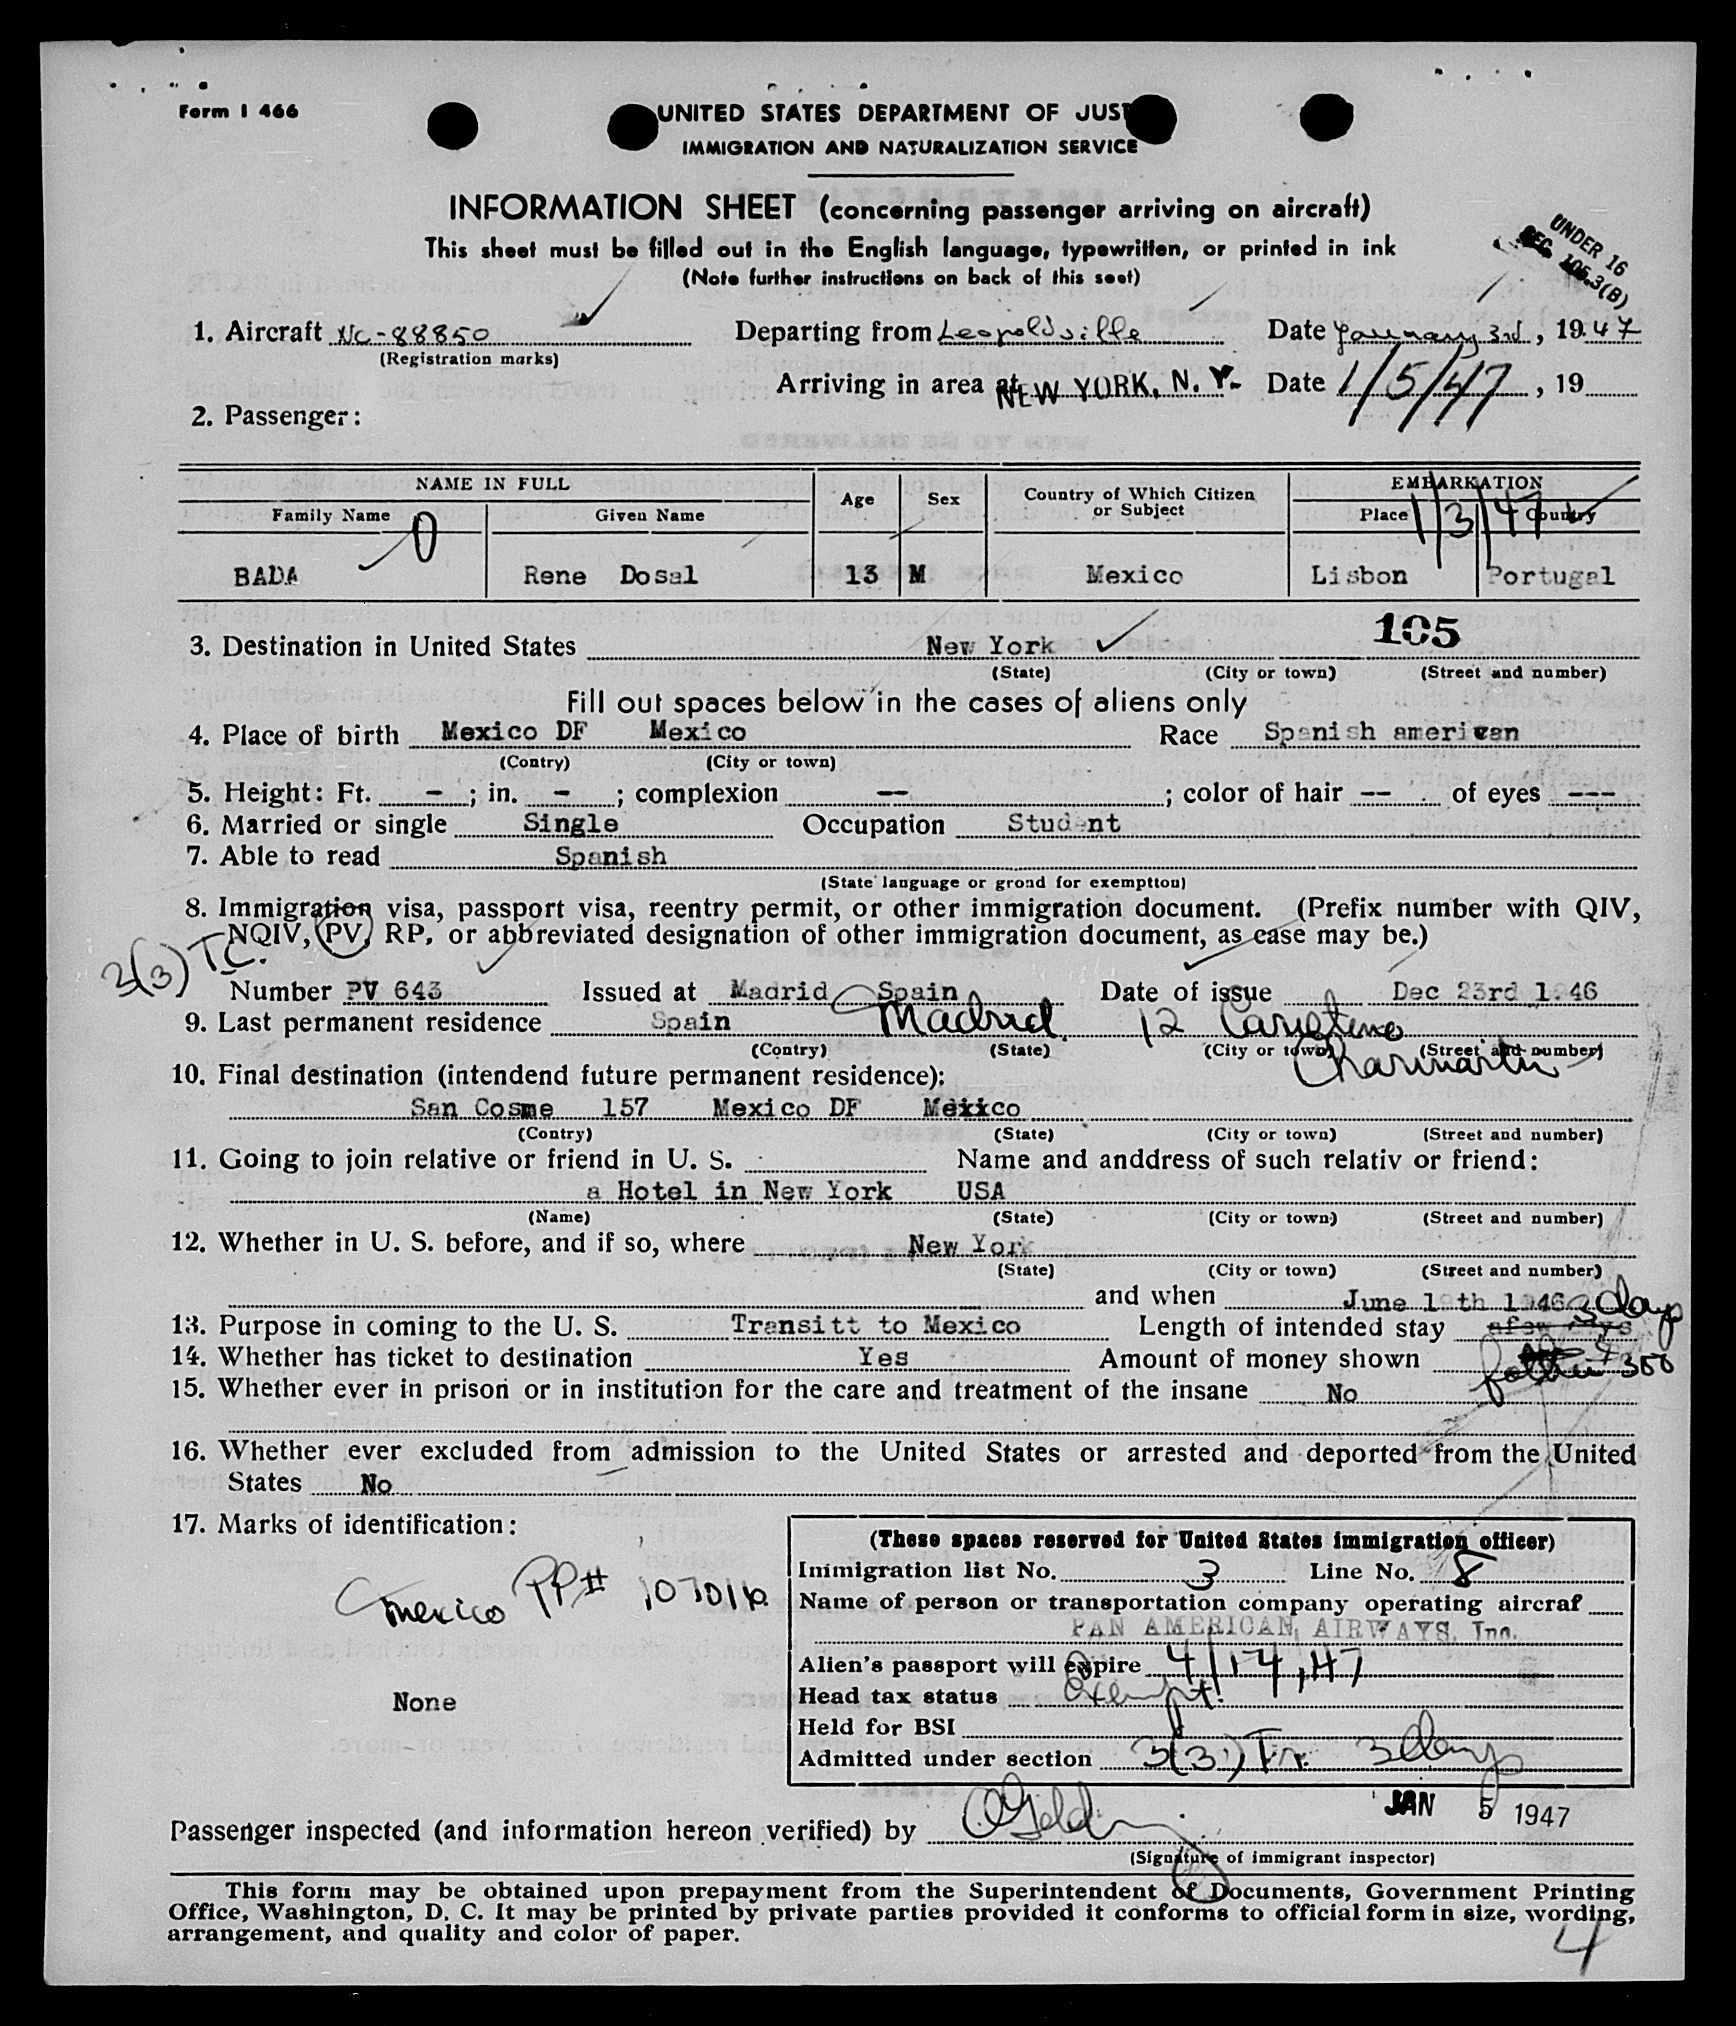 Form I 466
UNITED STATES DEPARTMENT OF JUST
IMMIGRATION AND NATURALIZATION SERVICE
INFORMATION SHEET (concerning passenger arriving on aircraft)
This sheet must be filled out in the English language, typewritten, or printed in ink
(Note further instructions on back of this seet)
UNDER 16
SEC. 105.3(B)
1. Aircraft NC-88850 Departing from Leopoldville Date January 3rd, 1947
(Registration marks)
Arriving in area at NEW YORK, N. Y. Date 1/5/47, 19
2. Passenger:
NAME IN FULL Age Sex Country of Which Citizen or Subject EMBARKATION
Family Name Given Name Place Country
0 1/3/47
BADA Rene Dosal 13 M Mexico Lisbon Portugal
105
3. Destination in United States New York
(State) (City or town) (Street and number)
Fill out spaces below in the cases of aliens only
4. Place of birth Mexico DF Mexico Race Spanish american
(Contry) (City or town)
5. Height: Ft. - ; in. - ; complexion -- ; color of hair -- of eyes ---
6. Married or single Single Occupation Student
7. Able to read Spanish
(State language or grond for exemptton)
8. Immigration visa, passport visa, reentry permit, or other immigration document. (Prefix number with QIV,
NQIV, PV, RP, or abbreviated designation of other immigration document, as case may be.)
3(3) T.C.
Number PV 643 Issued at Madrid Spain Date of issue Dec 23rd 1.46
9. Last permanent residence Spain Madrid 12
(Contry) (State) (City or town) (Street and number)
Charmartin
10. Final destination (intendend future permanent residence):
San Cosme 157 Mexico DF Mexico
(Contry) (State) (City or town) (Street and number)
11. Going to join relative or friend in U. S. - Name and anddress of such relativ or friend:
a Hotel in New York USA
(Name) (State) (City or town) (Street and number)
12. Whether in U. S. before, and if so, where New York
(State) (City or town) (Street and number)
and when June 1 th 1946
3 days
13. Purpose in coming to the U. S. Transitt to Mexico Length of intended stay afew days
14. Whether has ticket to destination Yes Amount of money shown father 300
15. Whether ever in prison or in institution for the care and treatment of the insane No
16. Whether ever excluded from admission to the United States or arrested and deported from the United
States No
17. Marks of identification:
Mexico PP#
None
(These spaces reserved for United States immigration officer)
Immigration list No. 3 Line No. 8
Name of person or transportation company operating aircraf
PAN AMERICAN AIRWAYS, Inc.
Alien's passport will expire 4/14/47
Head tax status Exempt
Held for BSI
Admitted under section 3(3) Tr. 3 days
JAN 5 1947
Passenger inspected (and information hereon verified) by
(Signature of immigrant inspector)
This form may be obtained upon prepayment from the Superintendent of Documents, Government Printing
Office, Washington, D. C. It may be printed by private parties provided it conforms to official form in size, wording,
arrangement, and quality and color of paper.
4